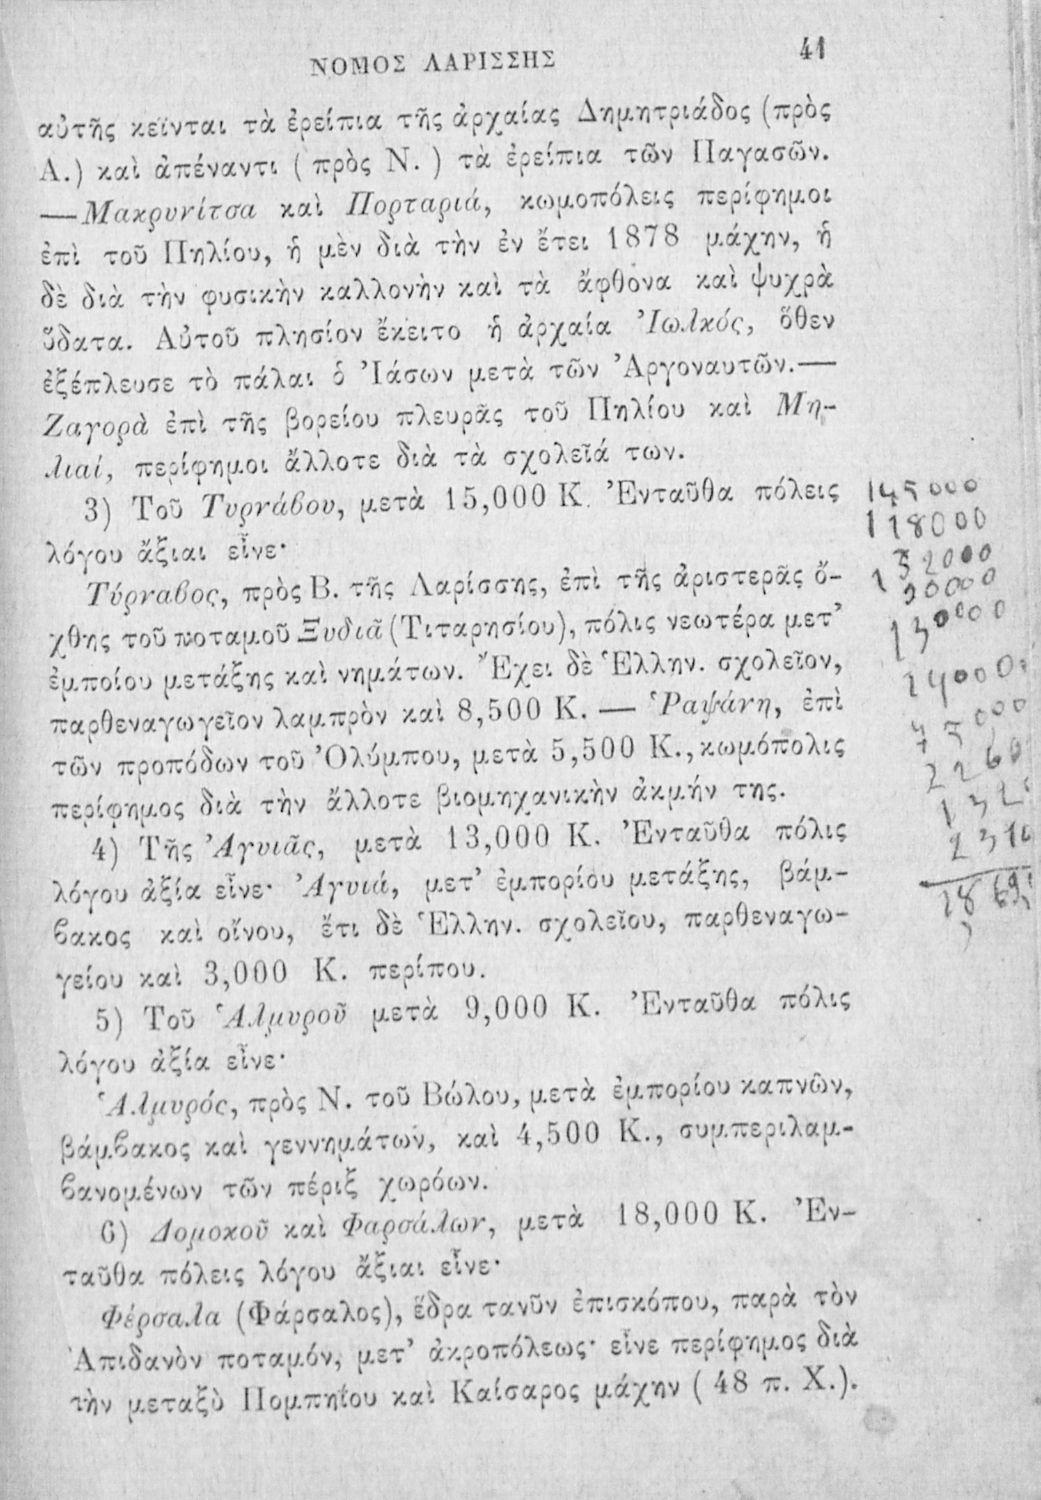 ΝΟΜΟΣ ΛΑΡΙΣΣΗΣ 41
αὐτῆς κεῖνται τὰ ἐρείπια τῆς ἀρχαίας Δημητριάδος (πρὸς
Α.) καὶ ἀπέναντι ( πρὸς Ν. ) τὰ ἐρείπια τῶν Παγασῶν.
—Μακρυνίτσα καὶ Πορταριά, κωμοπόλεις περίφημοι
ἐπὶ τοῦ Πηλίου, ἡ μὲν διὰ τὴν ἐν ἔτει 1878 μάχην, ἡ
δὲ διὰ τὴν φυσικὴν καλλονὴν καὶ τὰ ἄφθονα καὶ ψυχρὰ
ὕδατα. Αὐτοῦ πλησίον ἔκειτο ἡ ἀρχαία Ἰωλκός, ὅθεν
ἐξέπλευσε τὸ πάλαι ὁ Ἰάσων μετὰ τῶν Ἀργοναυτῶν.—
Ζαγορὰ ἐπὶ τῆς βορείου πλευρᾶς τοῦ Πηλίου καὶ Μη-
λιαί, περίφημοι ἄλλοτε διὰ τὰ σχολεῖά των.
3) Τοῦ Τυρνάβου, μετὰ 15,000 Κ. Ἐνταῦθα πόλεις
λόγου ἄξιαι εἶνε·
Τύρναβος, πρὸς Β. τῆς Λαρίσσης, ἐπὶ τῆς ἀριστερᾶς ὄ-
χθης τοῦ ποταμοῦ Ξυδιᾶ (Τιταρησίου), πόλις νεωτέρα μετ’
ἐμποίου μετάξης καὶ νημάτων. Ἔχει δὲ Ἑλλην. σχολεῖον,
παρθεναγωγεῖον λαμπρὸν καὶ 8,500 Κ. — Ῥαψάνη, ἐπὶ
τῶν προπόδων τοῦ Ὀλύμπου, μετὰ 5,500 Κ., κωμόπολις
περίφημος διὰ τὴν ἄλλοτε βιομηχανικὴν ἀκμήν της.
4) Τῆς Ἀγυιᾶς, μετὰ 13,000 Κ. Ἐνταῦθα πόλις
λόγου ἀξία εἶνε· Ἀγυιά, μετ’ ἐμπορίου μετάξης, βάμ-
βακος καὶ οἴνου, ἔτι δὲ Ἑλλην. σχολείου, παρθεναγω-
γείου καὶ 3,000 Κ. περίπου.
5) Τοῦ Ἁλμυροῦ μετὰ 9,000 Κ. Ἐνταῦθα πόλις
λόγου ἀξία εἶνε·
Ἁλμυρός, πρὸς Ν. τοῦ Βώλου, μετὰ ἐμπορίου καπνῶν,
βάμβακος καὶ γεννημάτων, καὶ 4,500 Κ., συμπεριλαμ-
βανομένων τῶν πέριξ χωρόων.
6) Δομοκοῦ καὶ Φαρσάλων, μετὰ 18,000 Κ. Ἐν-
ταῦθα πόλεις λόγου ἄξιαι εἶνε·
Φέρσαλα (Φάρσαλος), ἕδρα τανῦν ἐπισκόπου, παρὰ τὸν
Ἀπιδανὸν ποταμόν, μετ’ ἀκροπόλεως· εἶνε περίφημος διὰ
τὴν μεταξὺ Πομπηΐου καὶ Καίσαρος μάχην ( 48 π. Χ.).
145000
118000